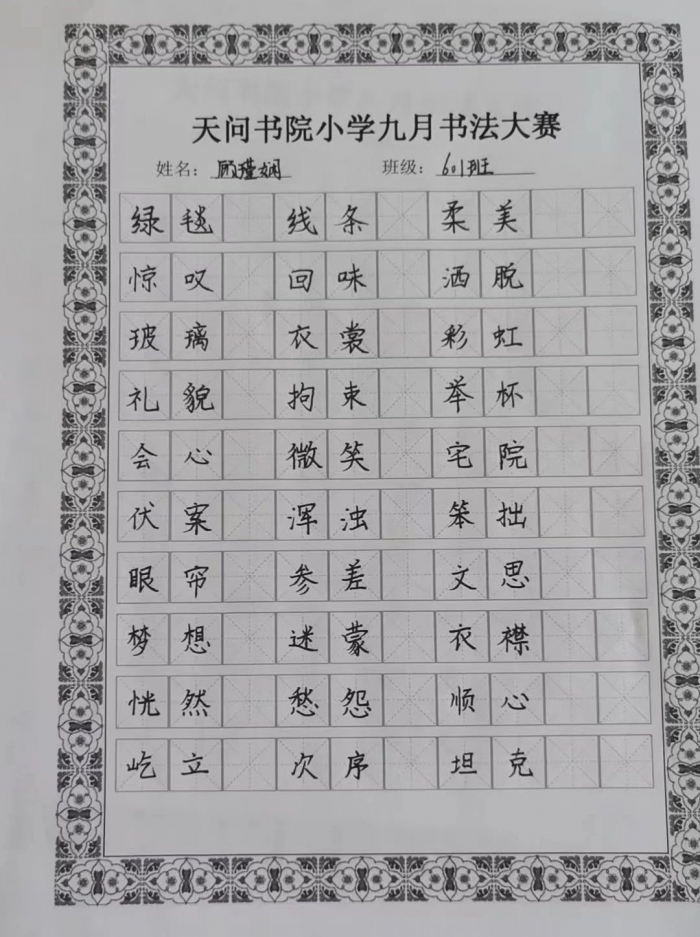 天问书院小学九月书法大赛
姓名：顾瑾娴 班级：601班
绿毯 线条 柔美
惊叹 回味 洒脱
玻璃 衣裳 彩虹
礼貌 拘束 举杯
会心 微笑 宅院
伏案 浑浊 笨拙
眼帘 参差 文思
梦想 迷蒙 衣襟
恍然 愁怨 顺心
屹立 次序 坦克